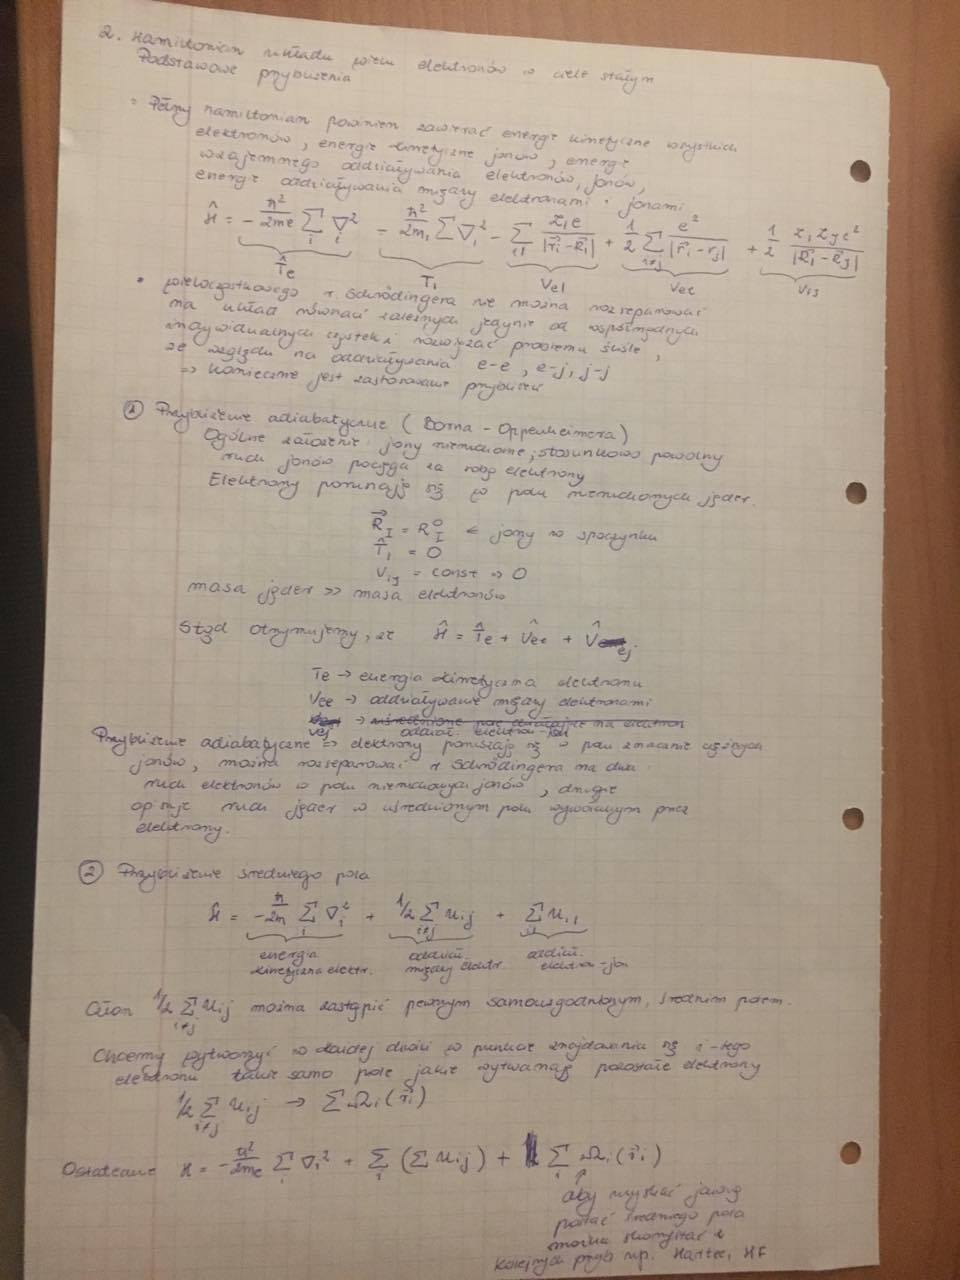 2. Hamiltonian układu wielu elektronów w ciele stałym
Podstawowe przybliżenia
• Pełny hamiltonian powinien zawierać energie kinetyczne wszystkich
elektronów, energie kinetyczne jonów, energie
wzajemnego oddziaływania elektronów, jonów,
energie oddziaływania między elektronami i jonami
Ĥ = - ħ²/2me ∑_i ∇_i² = ħ²/2m_I ∑ ∇_I² - ∑_iI Z_I e/|r⃗_i - R⃗_I| + 1/2 ∑_i≠j e²/|r⃗_i - r_j| + 1/2 Z_I Z_J e²/|R⃗_I - R⃗_J|
T̂e T_I V_eI Vee V_IJ
• wielocząstkowego r. Schrödingera nie można rozseparować
na układ równań zależnych jedynie od współrzędnych
indywidualnych cząstek i rozwiązać problemu ściśle,
ze względu na oddziaływania e-e, e-j, j-j
⇒ konieczne jest zastosowanie przybliżeń
① Przybliżenie adiabatyczne (Borna - Oppenheimera)
Ogólne założenie: jony nieruchome, stosunkowo powolny
ruch jonów pociąga za sobą elektrony
Elektrony poruszają się w polu nieruchomych jąder.
R⃗_I = R_I^0 ← jony w spoczynku
T̂_I = 0
V_IJ = const ⇒ 0
masa jąder >> masa elektronów
Stąd otrzymujemy, że Ĥ = T̂e + V̂ee + V̂ej
Te → energia kinetyczna elektronu
Vee → oddziaływanie między elektronami
Vej oddział. elektron-jon
Przybliżenie adiabatyczne ⇒ elektrony poruszają się w polu znacznie cięższych
jonów, można rozseparować r. Schrödingera na dwa:
ruch elektronów w polu nieruchomych jonów, drugie
opisuje ruch jąder w uśrednionym polu wywołanym przez
elektrony.
② Przybliżenie średniego pola
Ĥ = -ħ/2m ∑_i ∇_i² + 1/2 ∑_i≠j u_ij + ∑ u_iI
energia oddział. oddział.
kinetyczna elektr. między elektr. elektron-jon
Człon 1/2 ∑_i≠j u_ij można zastąpić pewnym samouzgodnionym, średnim polem.
Chcemy wytworzyć w każdej chwili w punkcie znajdowania się i-tego
elektronu takie samo pole jakie wytwarzają pozostałe elektrony
1/2 ∑_i≠j u_ij → ∑ Ω_i(r⃗_i)
Ostatecznie H = -ħ²/2me ∑_i ∇_i² + ∑_i (∑ u_ij) + ∑_i Ω_i(r⃗_i)
↑
aby uzyskać jawną
postać średniego pola
można skorzystać z
kolejnych przyb np. Hartree, HF